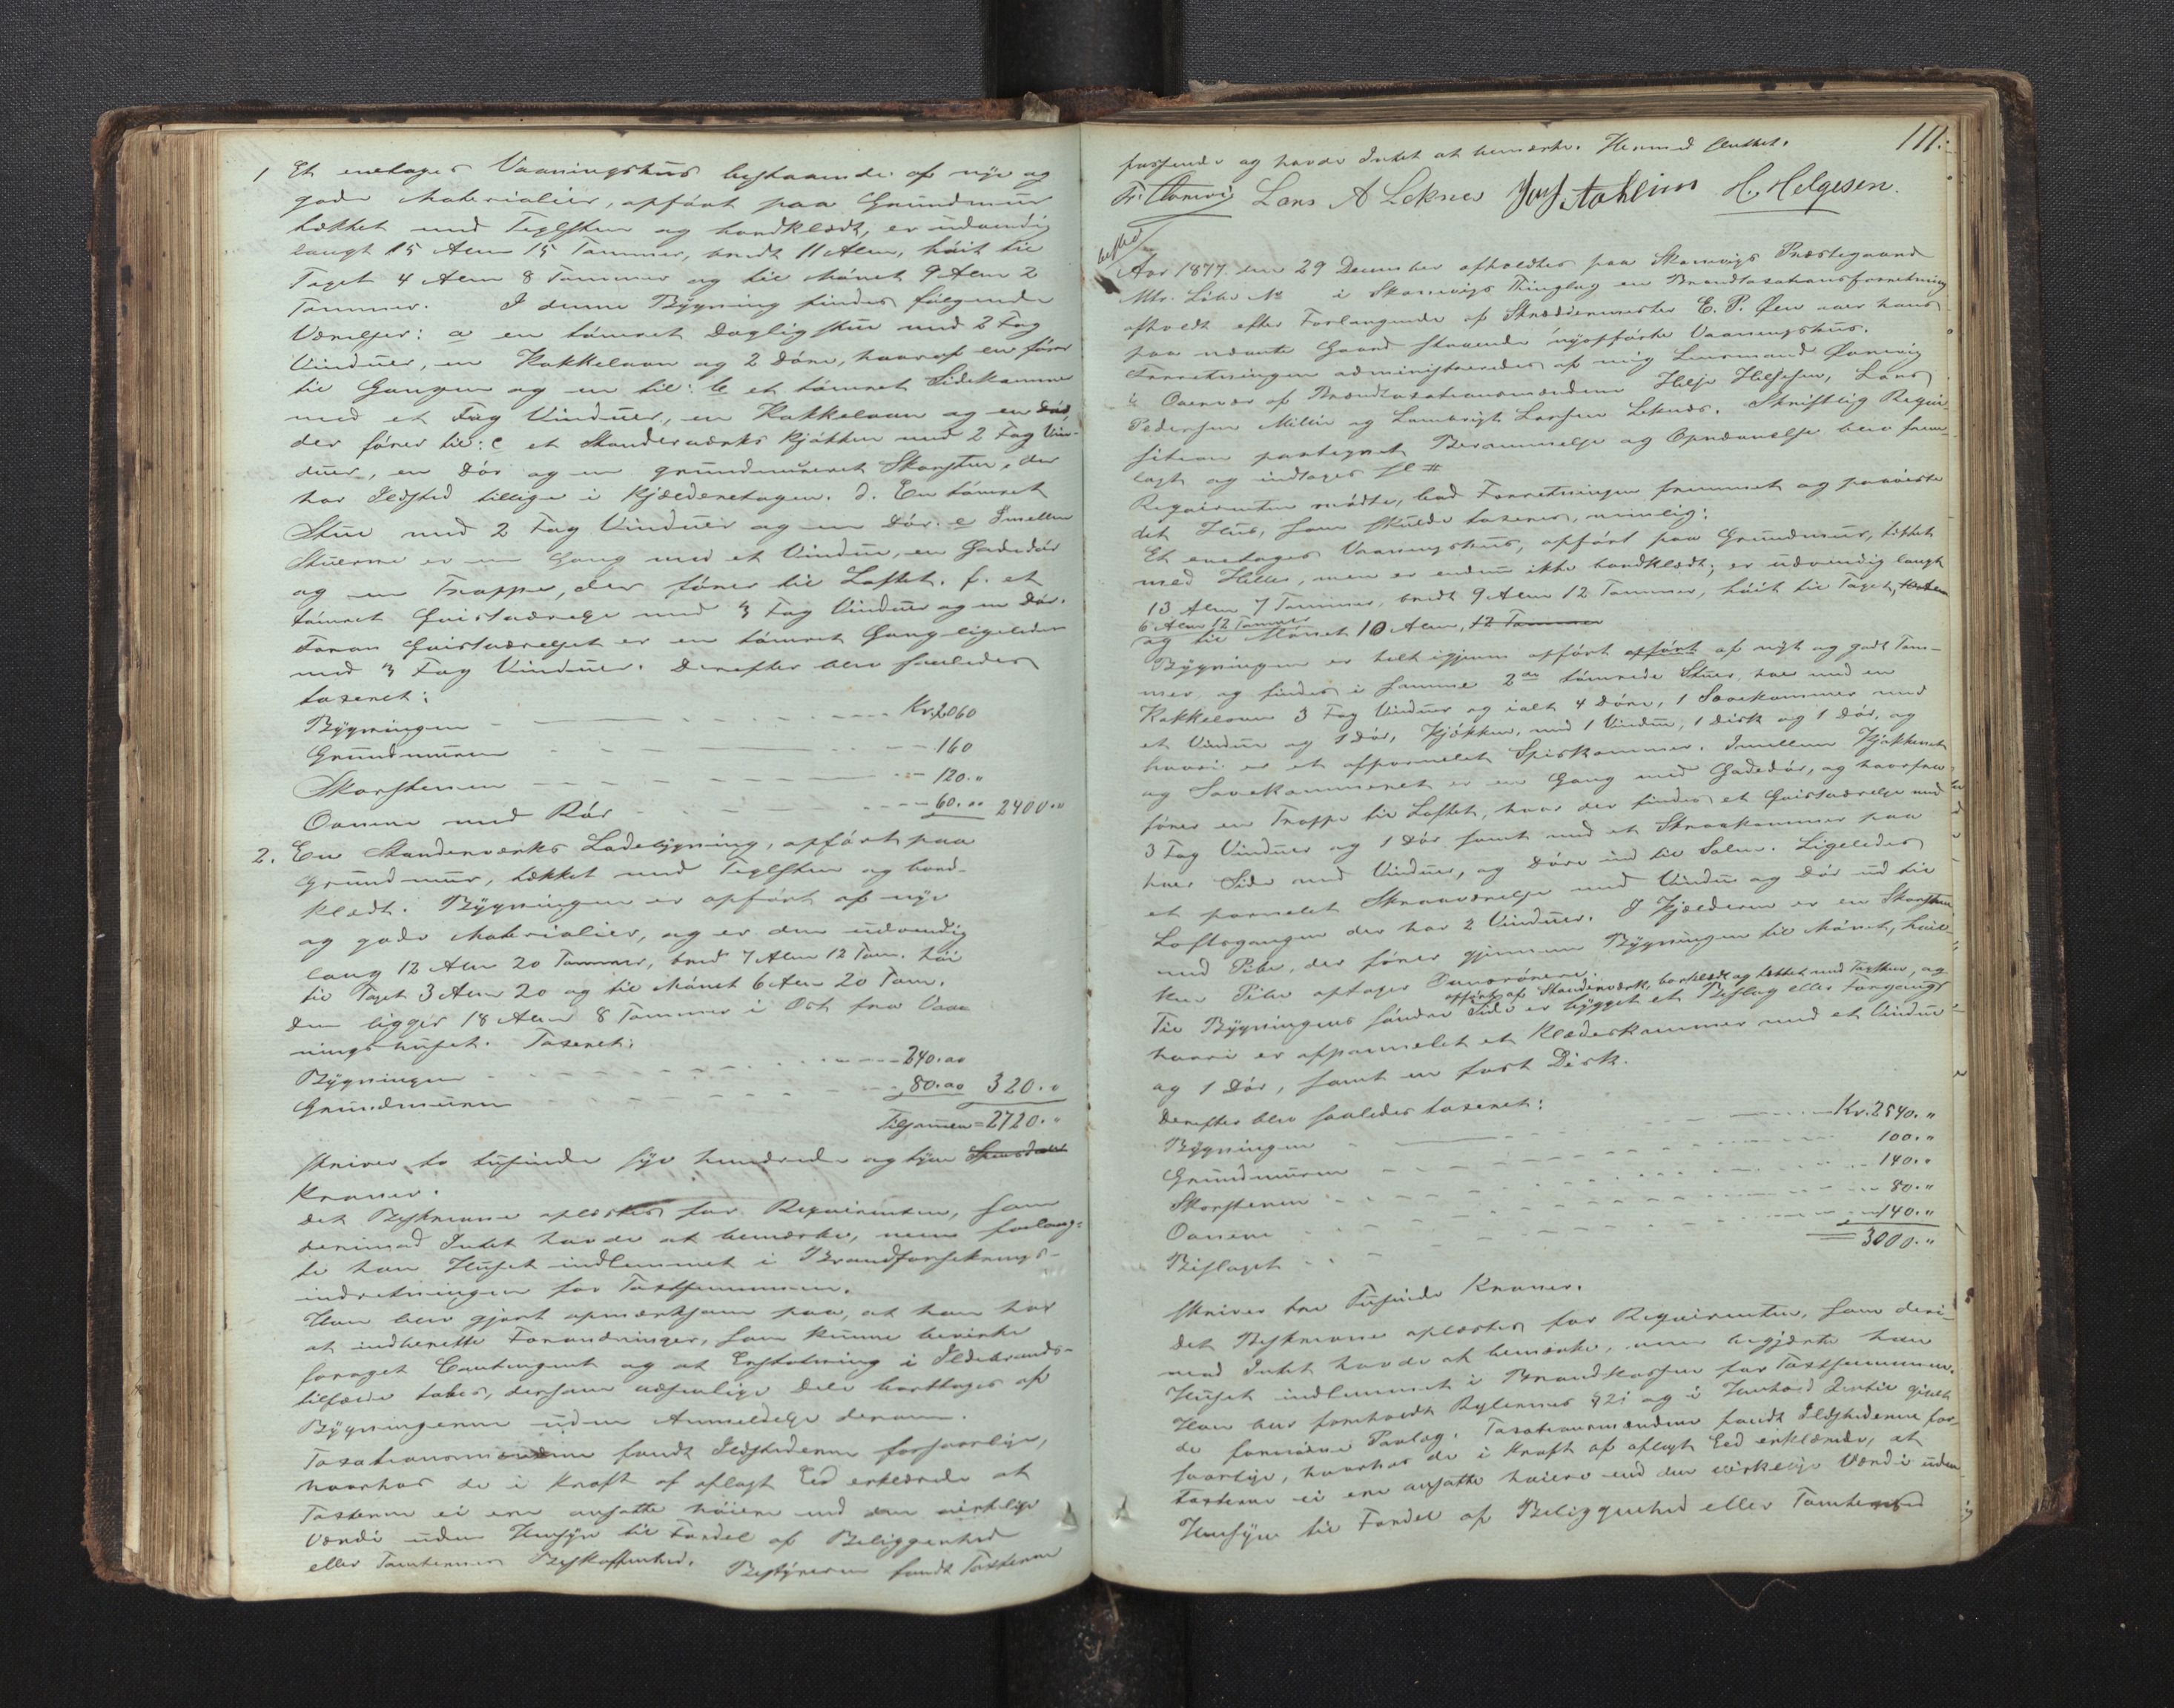 1 Et enetages Vaaningshus bestaaende af nye og
gode Materialier, opført paa Grundmuur
tækket med Teglsten og bordklædt, er udvendig
langt 15 Alen 15 Tommer, bredt 11 Alen, høit til
Taget 4 Alen 8 Tommer og til Mønet 9 Alen 2
Tommer. I denne Bygning findes følgende
Værelser: a en tømret Dagligstue med 2 Fag
Vinduer, en Kakkelovn og 2 Døre, hvoraf en fører
til Gangen og en til: b et tømret Sidekammer
med et Fag Vinduer, en Kakkelovn og en Dør,
der fører til: c et Standerværks Kjøkken med 2 Fag Vin-
duer, en Dør og en grundmuret Skorsten, der
har Ildsted tillige i Kjælderetagen. d. En tømret
Stue med 2 Fag Vinduer og en Dør. e Imellem
Stuerne er en Gang med et Vindue, en Gadedør
og en Trappe, der fører til Loftet. f. et
tømret Qvistværelse med 3 Fag Vinduer og en Dør.
Foran Qvistværelset er en tømret Gang ligeledes
med 3 Fag Vinduer. Derefter blev saaledes
taxeret:
Bygningen Kr. 2060
Grundmuren 160
Skorstenen 120.,,
Ovnene med Rør 60.00 2400.00
2. En Standerværks Ladebygning, opført paa
Grundmuur, tækket med Teglsten og bord-
klædt. Bygningen er opført af nye
og gode Materialier, og er den udvendig
lang 12 Alen 20 Tommer, bred 7 Alen 12 Tom. høi
til Taget 3 Alen 20 og til Mønet 6 Alen 20 Tom.
Den ligger 18 Alen 8 Tommer i Øst fra Vaa-
ningshuset. Taxeret:
Bygningen 240.00
Grundmuren 80.00 320.,,
Tilsammen = 2720.,,
skriver to tusinde syv hundrede og tyve
Kroner.
Det Beskrevne oplæstes for Reqvirenten, som
derimod Intet havde at bemærke, men forlang-
te han Huset indlemmet i Brandforsikrings-
indretningen for Taxtsummen.
Han blev gjort opmærksom paa, at han har
at indberette Forandringer, som kunne bevirke
forøget Contingent og at Erstatning i Ildebrands-
tilfælde tabes, dersom væsentlige Dele borttages af
Bygningerne uden Anmeldelse derom.
Taxationsmændene fandt Ildstederne forsvarlige,
hvorhos de i Kraft af aflagt Eed erklærede at
Taxterne ei ere ansatte høiere end den virkelige
Værdi uden Hensyn til Fordel af Beliggenhed
eller Tomternes Beskaffenhed. Bestyreren fandt Taxterne
111.
passende og havde Intet at bemærke. Hermed sluttet.
Lars A Leknes H. Helgesen.
Aar 1877 den 29 December afholdtes paa Skonevigs Præstegaard
Mtr. Løbe No i Skonevigs Thinglag en Brandtaxationsforretning
afholdt efter Forlangende af Skræddermester E. P. Øen over hans
paa nævnte Gaard staaende nyopførte Vaaningshus.
Forretningen administreredes af mig Lensmand
i Overvær af Brandtaxationsmændene Helje Heljesen, Lars
Pedersen Milje og Lambrigt Larsen Leknæs. Skriftlig Reqvi-
sition paategnet Berammelse og Opnævnelse blev frem-
lagt og indtages sl #
Reqvirenten mødte, bad Forretningen fremmet og paaviste
det Hus, som skulde taxeres, nemlig:
Et enetages Vaaningshus, opført paa Grundmur, tækket
med Heller, men er endnu ikke bordklædt; er udvendig langt
13 Alen 7 Tommer, bredt 9 Alen 12 Tommer, høit til Taget
6 Alen 12 Tommer
og til Mønet 10 Alen, 12 Tommer
Bygningen er helt igjennem opført opført af nyt og godt Tøm-
mer, og findes i samme 2de tømrede Stuer, hver med en
Kakkelovn 3 Fag Vinduer og ialt 4 Døre, 1 Sovekammer med
et Vindue og 1 Dør, Kjøkken, med 1 Vindue, 1 Disk og 1 Dør, og
hvori er et afpanelet Spiskammer. Imellem Kjøkkenet
og Sovekammeret er en Gang med Gadedør, og hvorfra
fører en Trappe til Loftet, hvor der findes et Qvistværelse med
3 Fag Vinduer og 1 Dør samt med et Skraakammer paa
hver Side med Vinduer, og Døre ind til Salen. Ligeledes
et panelet Skraaværelse med Vindue og Dør ud til
Loftsgangen der har 2 Vinduer. I Kjælderen er en Skorsten
med Pibe, der fører gjennem Bygningen til Mønet, hvil-
ken Pibe optager Ovnsrørene.
opført af Standerværk, bordklædt og tækket med Teglsten, og
Til Bygningens søndre Side er bygget et Bislag eller Forgang
hvori er afpanelet et Klædeskammer med et Vindue
og 1 Dør, samt en fast Disk.
Derefter blev saaledes taxeret:
Bygningen Kr. 2540.,,
Grundmuren 100.,,
Skorstenen 140.,,
Ovnene 80.,,
Bislaget 140.,,
3000.,,
skriver tre Tusinde Kroner.
Det Beskrevne oplæstes for Reqvirenten, som deri-
mod Intet havde at bemærke, men begjærte han
Huset indlemmet i Brandkassen for Taxtsummen.
Han blev foreholdt Reglernes § 21 og i Henhold dertil givet
de fornødne Paalæg. Taxationsmændene fandt Ildstederne for-
svarlige, hvorhos de i Kraft af aflagt Eed erklærede, at
Taxterne ei ere ansatte høiere end den virkelige Værdi uden
Hensyn til Fordel af Beliggenhed eller Tomternes